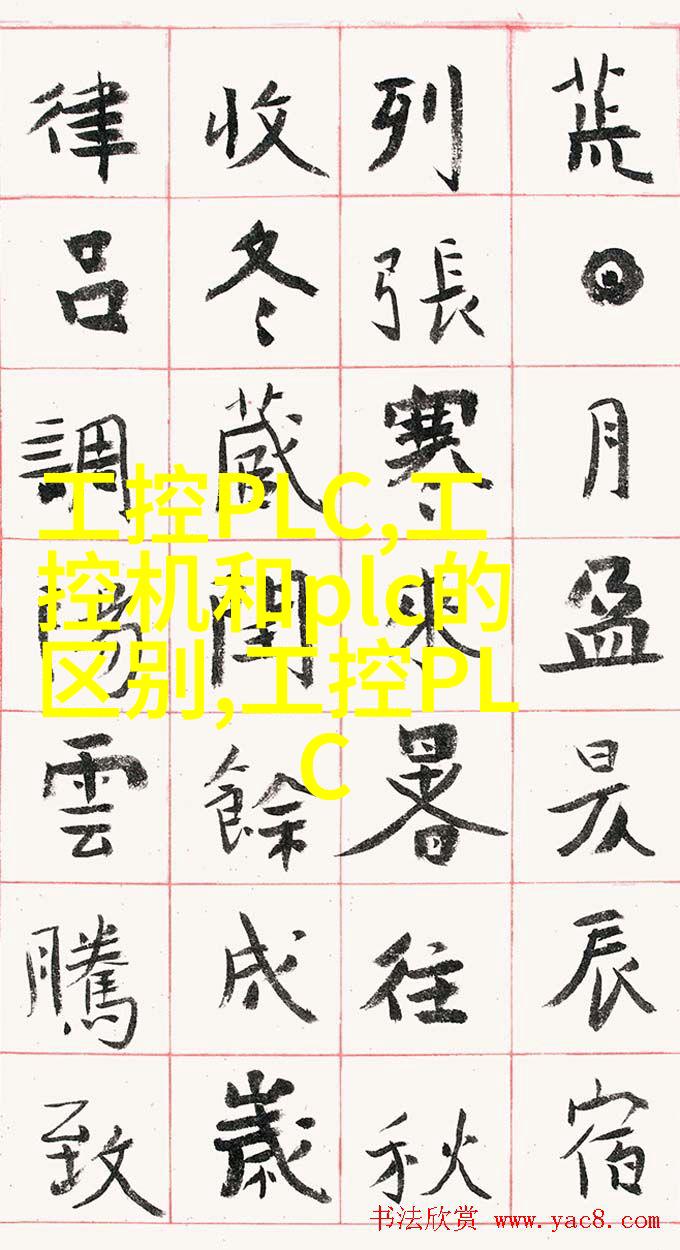 荒日月盈昃辰宿
列張寒來暑往秋
收冬藏閏餘成歲
律呂調陽雲騰致
工控PLC,工
控机和plc的
区别,工控PL
C
书法欣赏 www.yac8.com